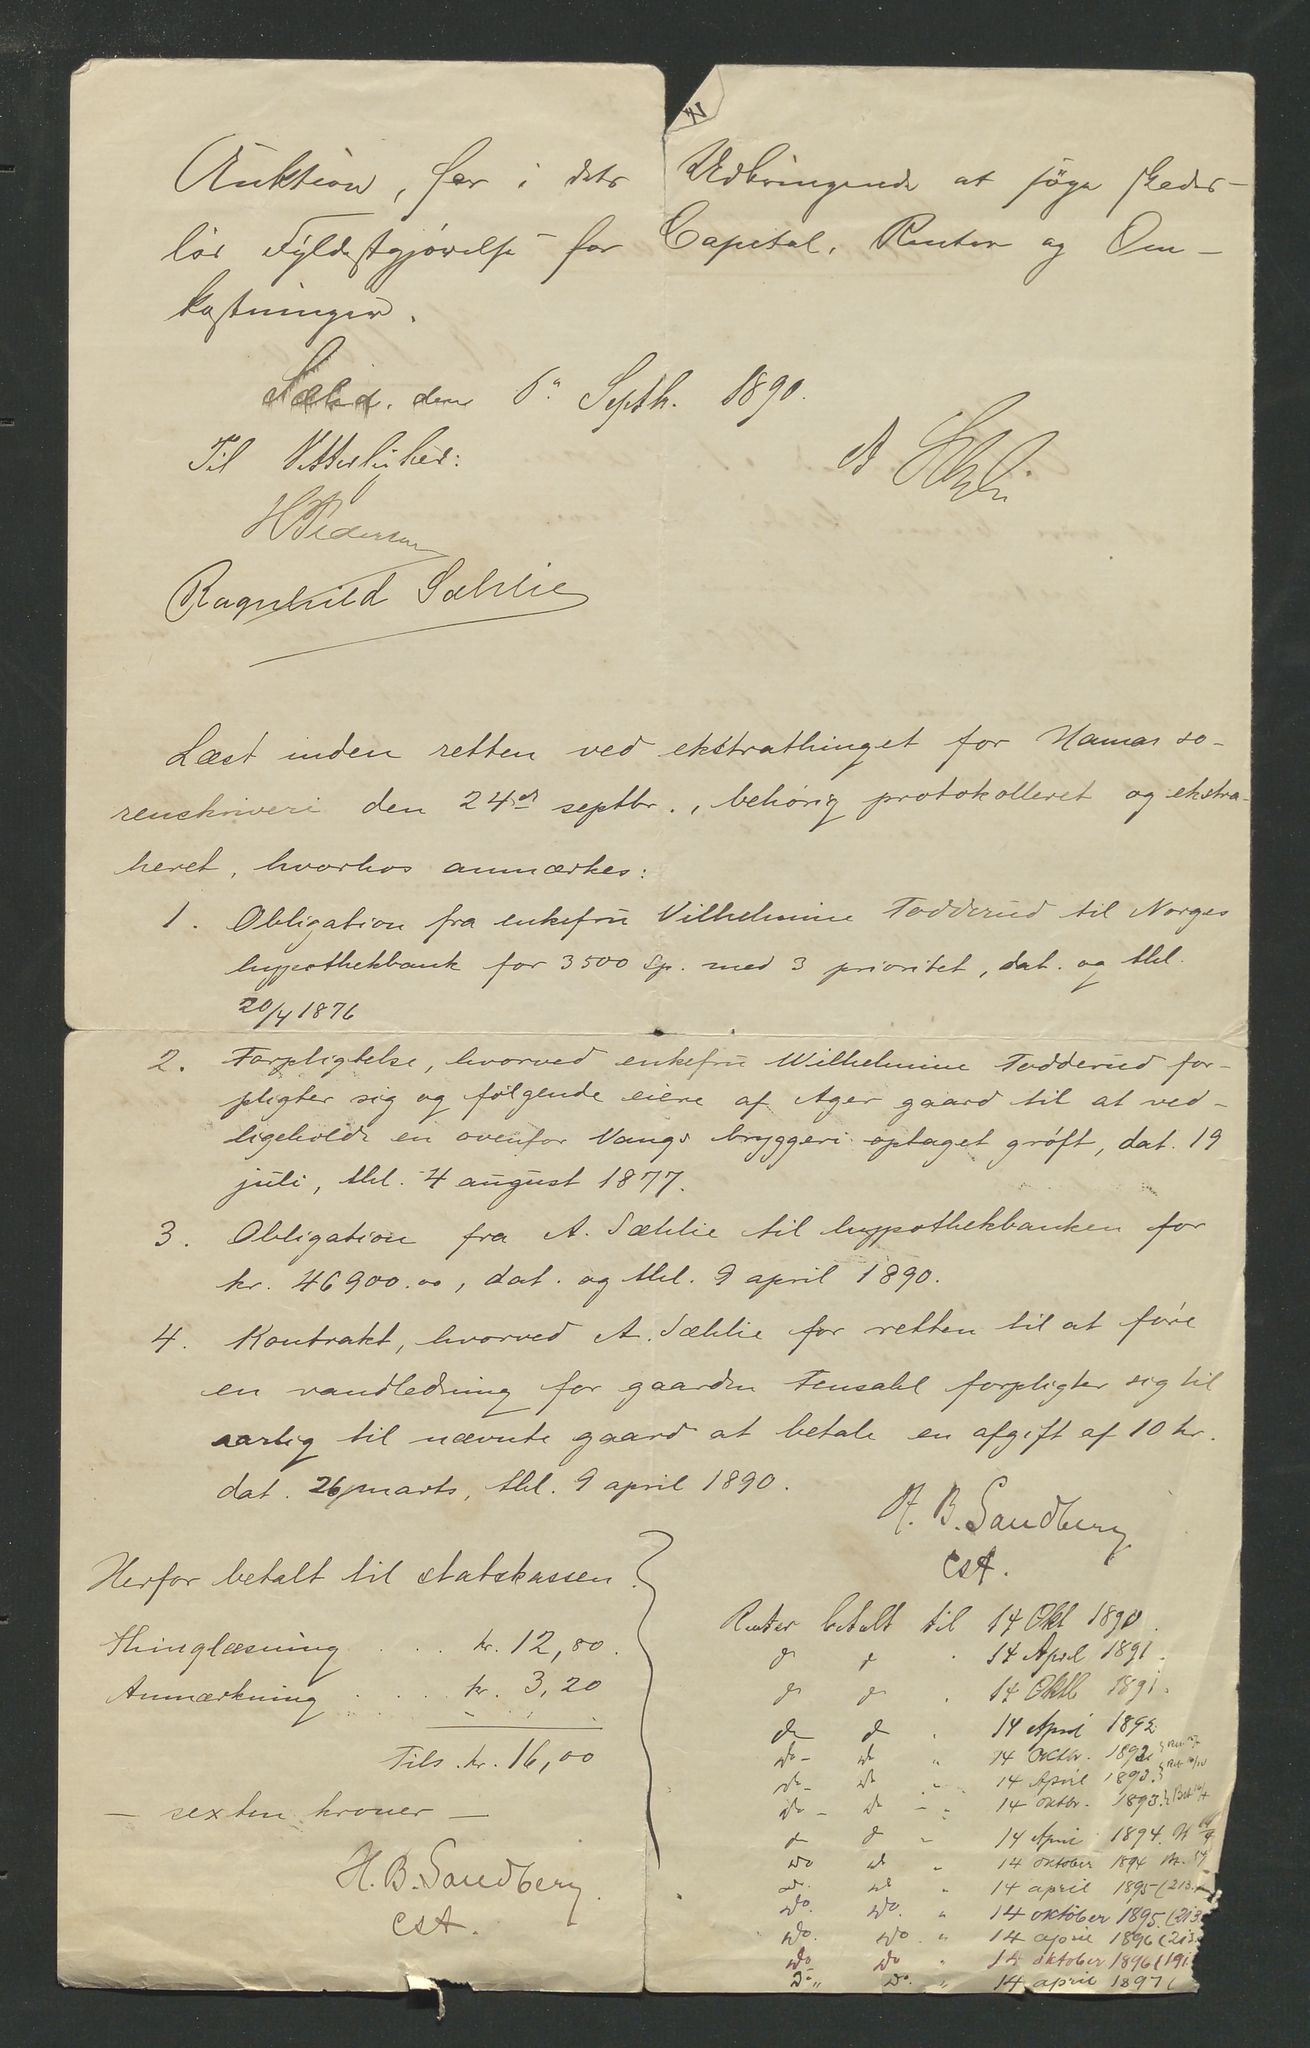 N
Auktion, for i dets Udbringende at søge skades-
løs Fyldestgjørelse for Capital, Renter og Om-
kostninger.
den 6te Septbr. 1890.
Til Vitterlighed:
A Sæhlie
H Pedersen
Ragnhild Sæhlie
Læst inden retten ved ekstrathinget for Hamar so-
renskriveri den 24de septbr., behørig protokolleret og ekstra-
heret, hvorhos anmærkes:
1. Obligation fra enkefru Vilhelmine Todderud til Norges
hypothekbank for 3500 Sp. med 3 prioritet, dat. og thl.
20/4 1876
2. Forpligtelse, hvorved enkefru Wilhelmine Todderud for-
pligter sig og følgende eiere af Ager gaard til at ved-
ligeholde en ovenfor Vangs bryggeri optaget grøft, dat. 19
juli, thl. 4 august 1877.
3. Obligation fra A. Sæhlie til hypothekbanken for
kr. 46900.00, dat. og thl. 9 april 1890.
4. Kontrakt, hvorved A. Sæhlie for retten til at føre
en vandledning for gaarden Finsahl forpligter sig til
aarlig til nævnte gaard at betale en afgift af 10 kr.
dat. 26 marts, thl. 9 april 1890.
H. B. Sandberg
cst.
Herfor betalt til statskassen.
Thinglæsning . . . kr. 12,80.
Anmærkning . . . . kr. 3,20
Tils. kr. 16,00
— sexten kroner —
H. B. Sandberg.
cst.
Renter betalt til 14 Okt 1890.
do do " 14 April 1891.
do do " 14 Oktb 1891.
do do " 14 April 1892
do- do " 14 Oktbr. 1892
do- do " 14 April 1893.
do- do - " 14 oktbr. 1893.
do do " 14 April 1894.
do do " 14 oktober 1894
do. do " 14 april 1895 (213.
do. do. " 14 oktober 1895 (213
do. do. " 14 april 1896 (213
do do " 14 oktober 1896 (191
do " do. " 14 april 1897 (